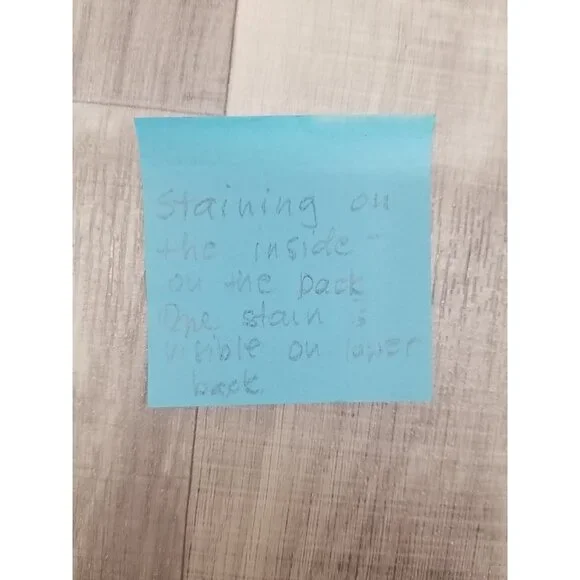 Staining on
the inside -
on the back
One stain is
visible on lower
back